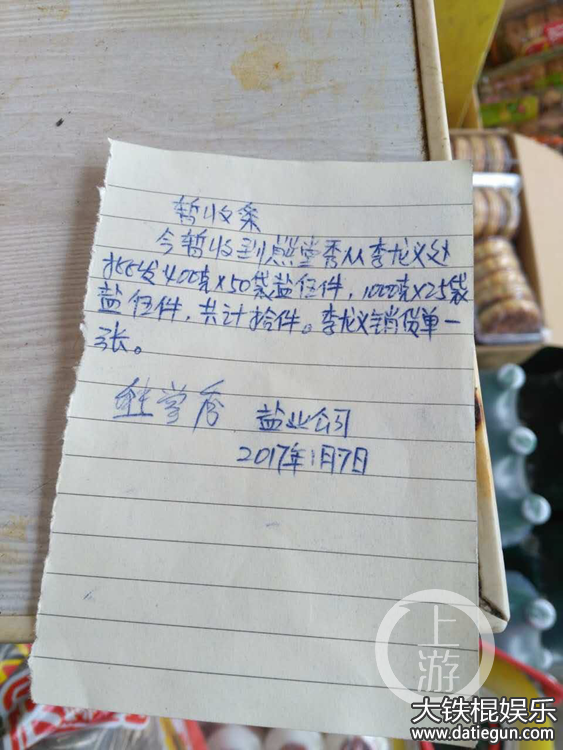 暂收条
今暂收到 堂秀从李龙义处
批发400克×50袋盐伍件，1000克×25袋
盐伍件，共计拾件。李龙义销货单一
张。
学秀 盐业公司
2017年1月7日
上游
大铁棍娱乐
www.datiegun.com